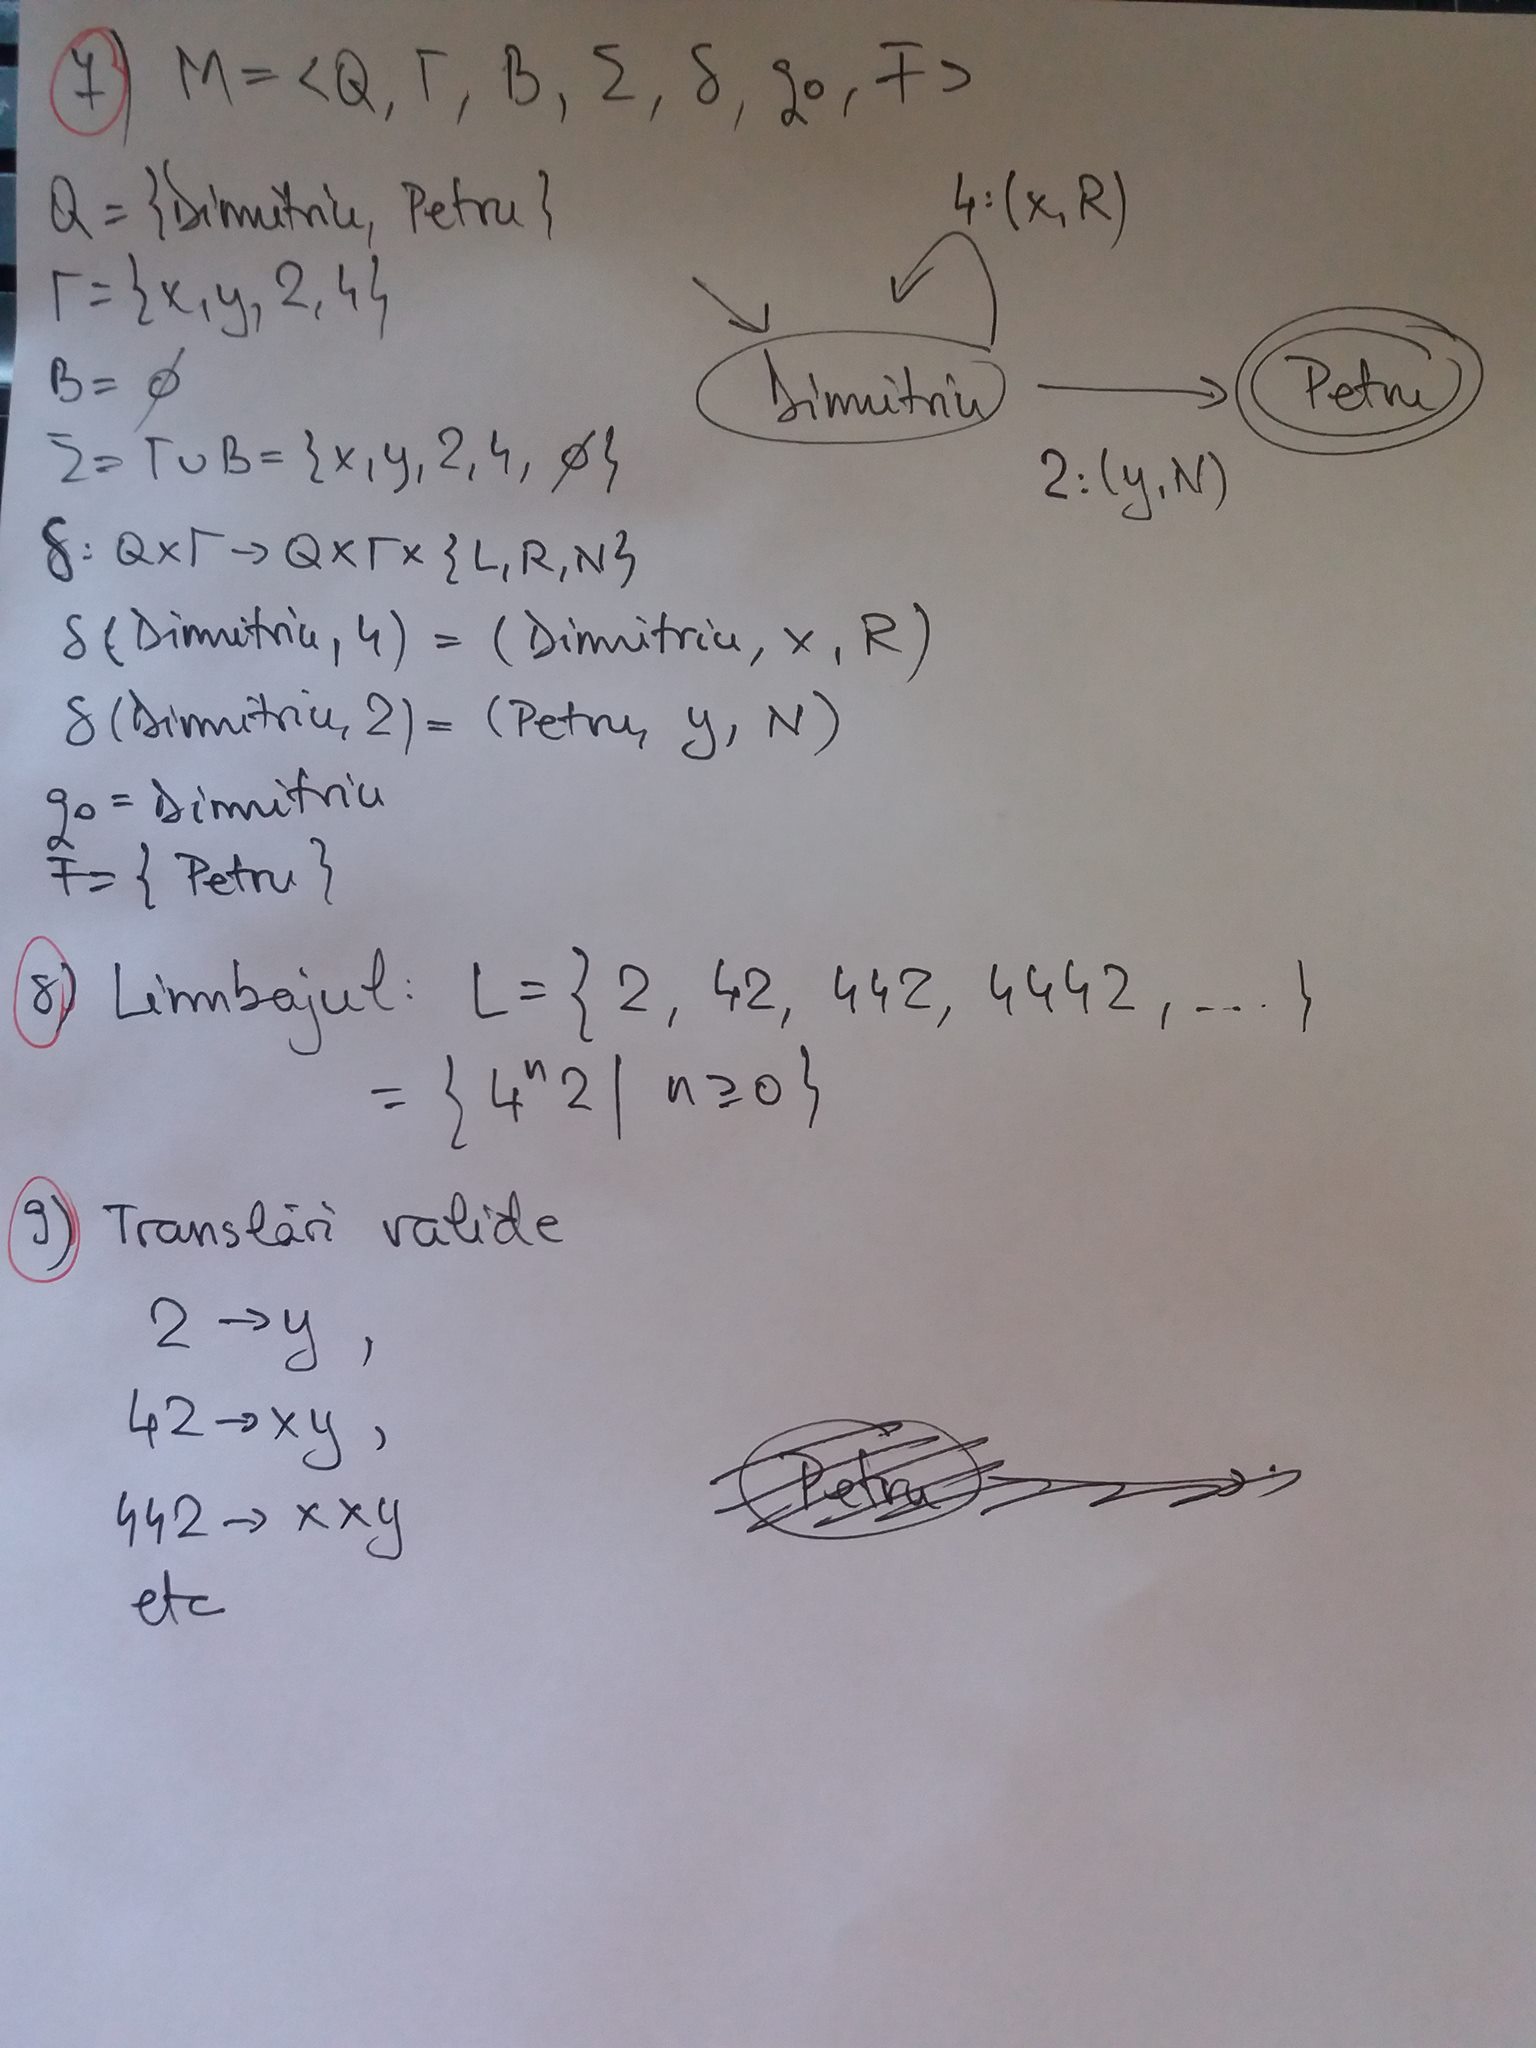 7) M = <Q, Γ, B, Σ, δ, q0, F>
Q = {Dimitriu, Petru}
Γ = {x, y, 2, 4}
B = ∅
Σ = Γ ∪ B = {x, y, 2, 4, ∅}
δ: Q×Γ → Q×Γ×{L, R, N}
δ(Dimitriu, 4) = (Dimitriu, x, R)
δ(Dimitriu, 2) = (Petru, y, N)
q0 = Dimitriu
F = {Petru}
4:(x, R)
Dimitriu
Petru
2:(y, N)
8) Limbajul: L = {2, 42, 442, 4442, ....}
= {4ⁿ2 | n ≥ 0}
9) Translări valide
2 → y,
42 → xy,
442 → xxy
etc
Petru